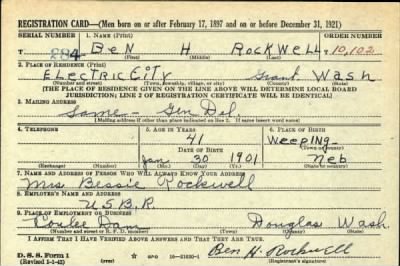 REGISTRATION CARD—(Men born on or after February 17, 1897 and on or before December 31, 1921)
SERIAL NUMBER 1. NAME (Print) ORDER NUMBER
T 284 BEN H ROCKWELL 10,102
(First) (Middle) (Last)
2. PLACE OF RESIDENCE (Print)
ELECTRIC CITY Grant Wash
(Number and street) (Town, township, village, or city) (County) (State)
[THE PLACE OF RESIDENCE GIVEN ON THE LINE ABOVE WILL DETERMINE LOCAL BOARD
JURISDICTION; LINE 2 OF REGISTRATION CERTIFICATE WILL BE IDENTICAL]
3. MAILING ADDRESS
Same - Gen Del.
[Mailing address if other than place indicated on line 2. If same insert word same]
4. TELEPHONE 5. AGE IN YEARS 6. PLACE OF BIRTH
41 Weeping-
DATE OF BIRTH (Town or county)
Jan 30 1901 Neb
(Exchange) (Number) (Mo.) (Day) (Yr.) (State or country)
7. NAME AND ADDRESS OF PERSON WHO WILL ALWAYS KNOW YOUR ADDRESS
Mrs Bessie Rockwell
8. EMPLOYER'S NAME AND ADDRESS
U S B R
9. PLACE OF EMPLOYMENT OR BUSINESS
Coulee Dam Douglas Wash.
(Number and street or R. F. D. number) (Town) (County) (State)
I AFFIRM THAT I HAVE VERIFIED ABOVE ANSWERS AND THAT THEY ARE TRUE.
D. S. S. Form 1
(Revised 1-1-42) GPO 16—21630-1 Ben H. Rockwell
(Registrant's signature)